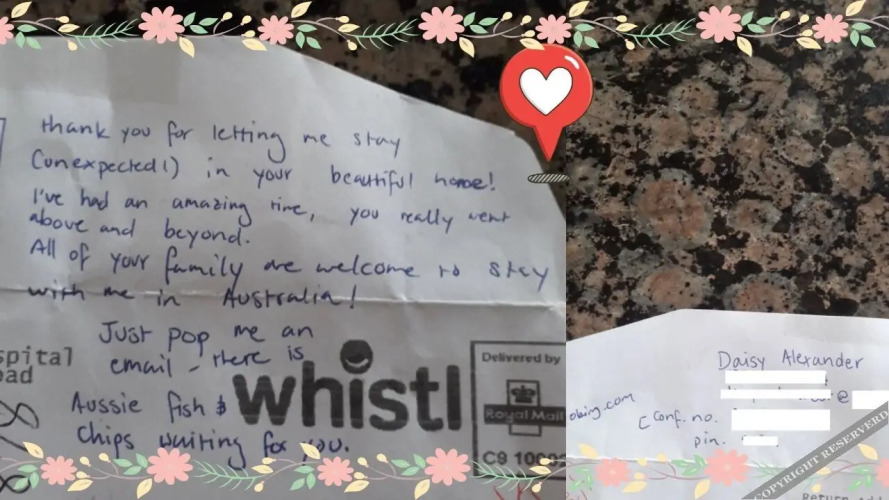 thank you for letting me stay
(unexpected!) in your beautiful home!
I've had an amazing time, you really went
above and beyond.
All of your family are welcome to stay
with me in Australia!
Just pop me an
email - there is
Aussie fish &
Chips waiting for you.
spital
oad
whistl
Delivered by
Royal Mail
C9 100
Daisy Alexander
@
obing.com
Conf. no.
pin.
COPYRIGHT RESERVED